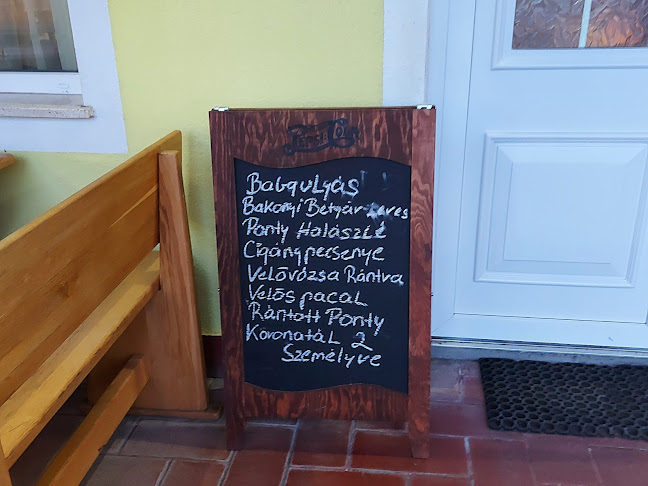 Babgulyás
Bakonyi Betyárleves
Ponty Halászlé
Cigánypecsenye
Velővózsa Rántva
Velős pacal
Rántott Ponty
Koronatál 2
Személyre